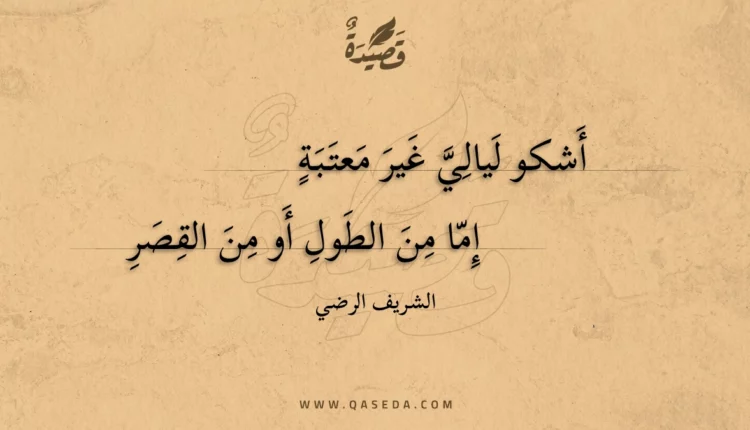 قَصِيدَةٌ
أَشكو لَيالِيَّ غَيرَ مَعتَبَةٍ
إِمّا مِنَ الطَولِ أَو مِنَ القِصَرِ
الشريف الرضي
WWW.QASEDA.COM